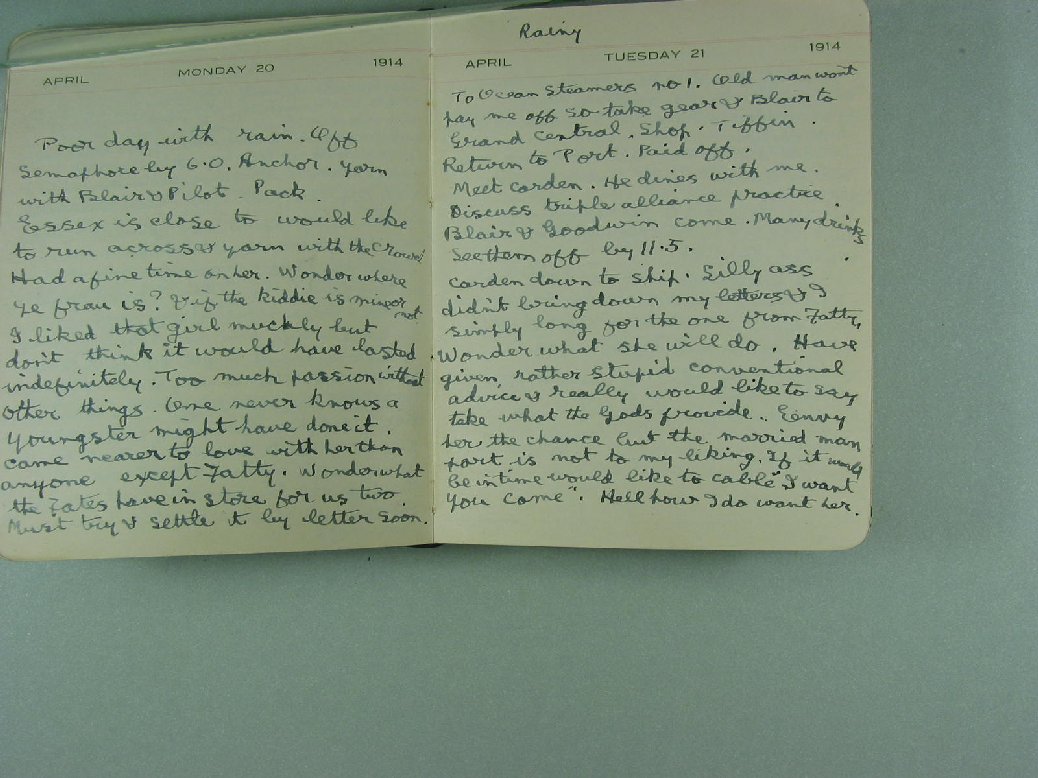 APRIL MONDAY 20 1914
Poor day with rain. Off
Semaphore by 6.0. Anchor. Yarn
with Blair & Pilot. Pack.
Essex is close to would like
to run across & yarn with the crowd
Had a fine time on her. Wonder where
ye frau is? & if the kiddie is mine or not
I liked that girl muchly but
don't think it would have lasted
indefinitely. Too much passion without
other things. One never knows a
youngster might have done it.
came nearer to love with her than
anyone except Fatty. Wonder what
the Fates have in store for us two.
Must try & settle it by letter soon.
Rainy
APRIL TUESDAY 21 1914
To Ocean Steamers no 1. Old man wont
pay me off so take gear & Blair to
Grand Central. Shop. Tiffin.
Return to Port. Paid off.
Meet Carden. He dines with me.
Discuss triple alliance practice.
Blair & Goodwin come. Many drinks
See them off by 11.5.
Carden down to ship. Silly ass
didn't bring down my letters & I
simply long for the one from Fatty,
Wonder what she will do. Have
given rather stupid conventional
advice & really would like to say
take what the Gods provide.. Envy
her the chance but the married man
part is not to my liking. If it would
be in time would like to cable "I want
you come". Hell how I do want her.